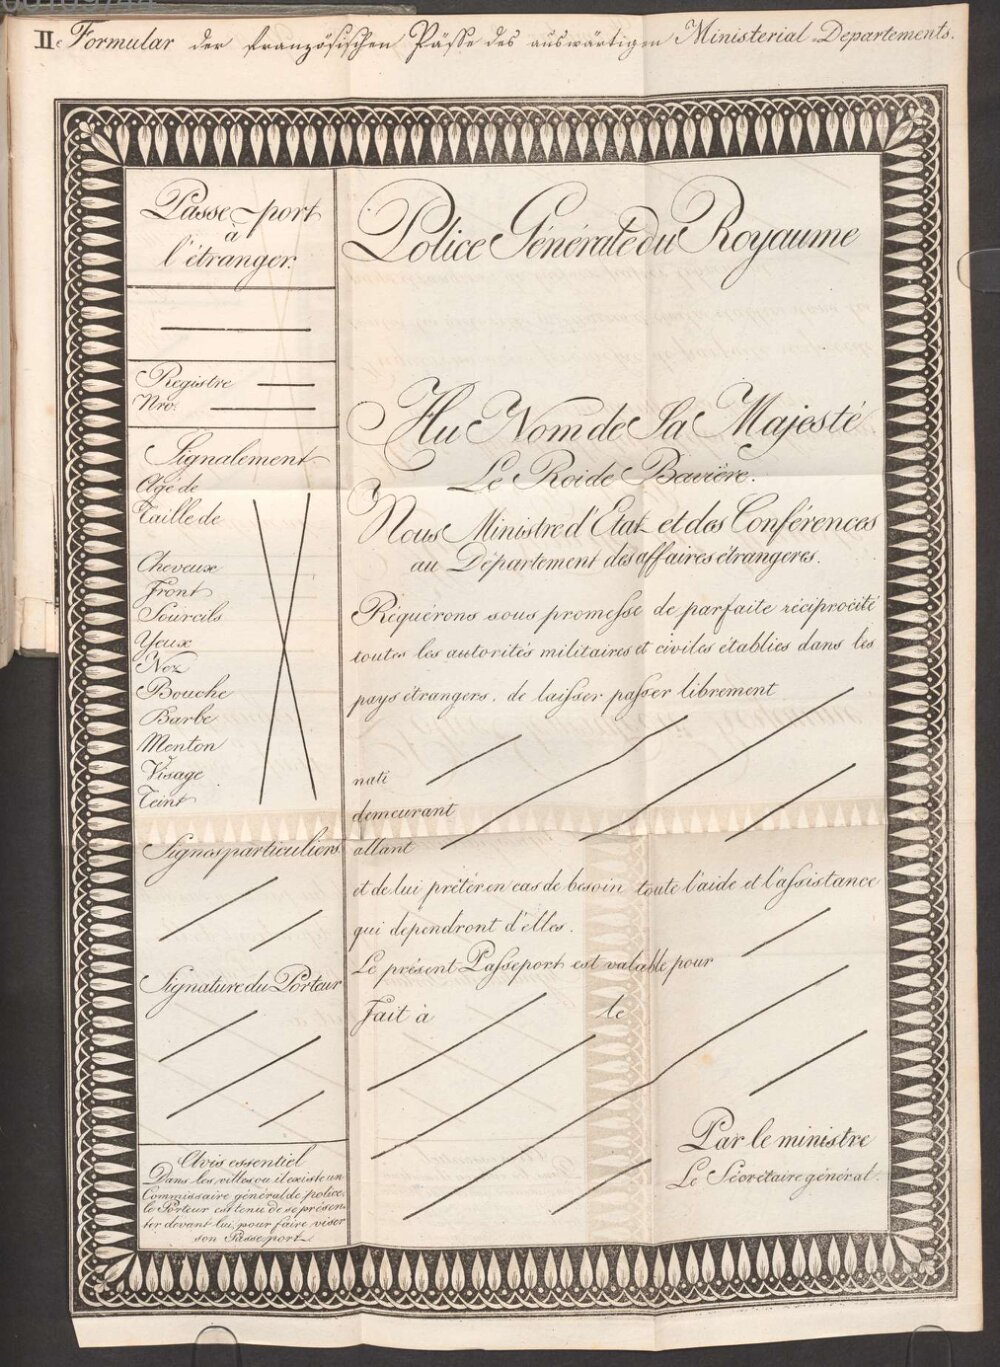 II. Formular der französischen Pässe des auswärtigen Ministerial-Departements.
Passe-port
à
l'étranger.
Registre
Nro.
Signalement
Agé de
Taille de
Cheveux
Front
Sourcils
Yeux
Nez
Bouche
Barbe
Menton
Visage
Teint
Signes particuliers
Signature du Porteur
Avis essentiel
Dans les villes ou il existe un
Commissaire général de police,
le Porteur est tenu de se présen-
ter devant lui, pour faire viser
son Passeport.
Police Générale du Royaume
Au Nom de Sa Majesté
Le Roi de Bavière.
Nous Ministre d'Etat et des Conférences
au Département des affaires étrangeres.
Réquerons sous promesse de parfaite réciprocité
toutes les autorités militaires et civiles établies dans les
pays étrangers, de laisser passer librement
nati
demeurant
allant
et de lui prêter en cas de besoin toute l'aide et l'assistance
qui dependront d'elles.
Le présent Passeport est valable pour
Fait à le
Par le ministre
Le Sécrétaire général.